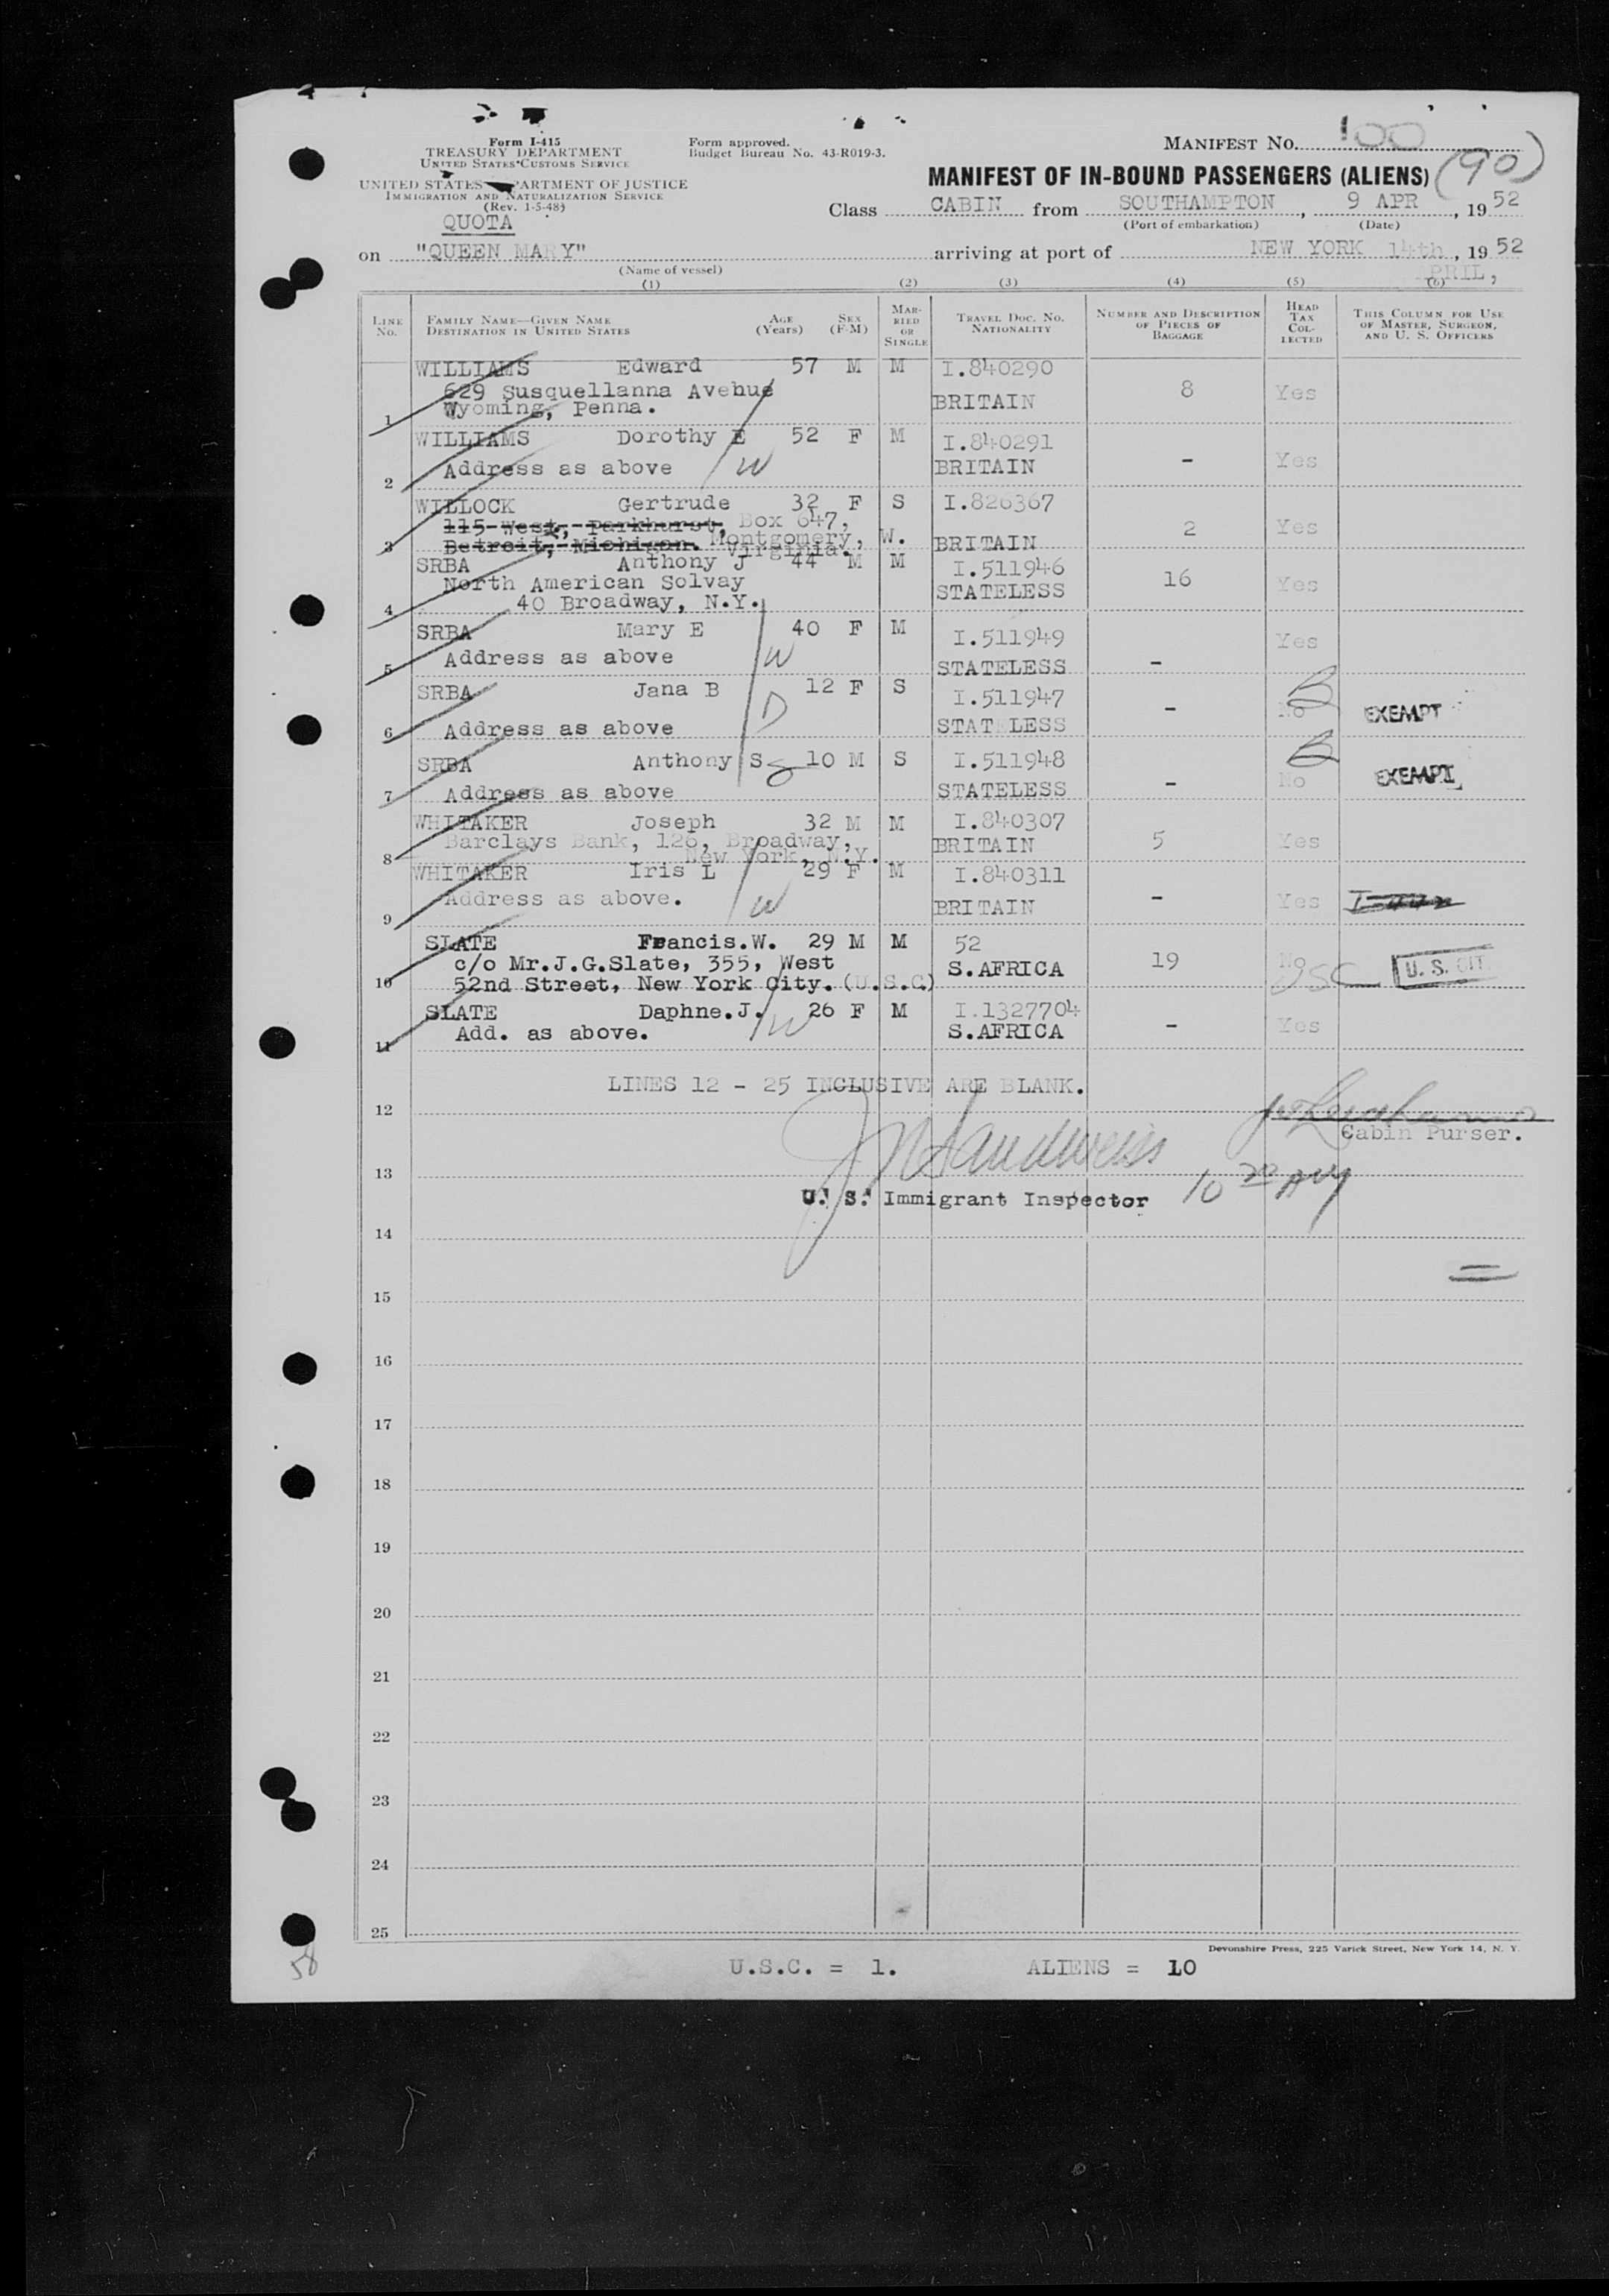 Form I-415
TREASURY DEPARTMENT
UNITED STATES CUSTOMS SERVICE
Form approved.
Budget Bureau No. 43-R019-3.
MANIFEST No. 100
(90)
UNITED STATES DEPARTMENT OF JUSTICE
IMMIGRATION AND NATURALIZATION SERVICE
(Rev. 1-5-48)
QUOTA
MANIFEST OF IN-BOUND PASSENGERS (ALIENS)
Class CABIN from SOUTHAMPTON, 9 APR, 1952
(Port of embarkation) (Date)
on "QUEEN MARY" arriving at port of NEW YORK 14th, 1952
PRIL,
(Name of vessel)
(1) (2) (3) (4) (5) (6)
LINE No. FAMILY NAME—GIVEN NAME DESTINATION IN UNITED STATES AGE (Years) SEX (F-M) MARRIED OR SINGLE TRAVEL DOC. NO. NATIONALITY NUMBER AND DESCRIPTION OF PIECES OF BAGGAGE HEAD TAX COLLECTED THIS COLUMN FOR USE OF MASTER, SURGEON, AND U. S. OFFICERS
WILLIAMS Edward 57 M M I.840290
629 Susquellanna Avenue BRITAIN 8 Yes
1 Wyoming, Penna.
WILLIAMS Dorothy E 52 F M I.840291
2 Address as above W BRITAIN - Yes
WILLOCK Gertrude 32 F S I.826367
115 West, Parkhurst, Box 647, 2 Yes
3 Detroit, Michigan. Montgomery, W. BRITAIN
Virginia.
SRBA Anthony J 44 M M I.511946
North American Solvay STATELESS 16 Yes
4 40 Broadway, N.Y.
SRBA Mary E 40 F M I.511949 Yes
5 Address as above W STATELESS -
SRBA Jana B 12 F S I.511947 B
6 Address as above D STAT LESS - No EXEMPT
SRBA Anthony S S 10 M S I.511948 B
7 Address as above STATELESS - No EXEMPT
WHITAKER Joseph 32 M M I.840307
8 Barclays Bank, 126, Broadway, BRITAIN 5 Yes
New York, N.Y.
WHITAKER Iris L 29 F M I.840311
9 Address as above. W BRITAIN - Yes
SLATE Francis.W. 29 M M 52
c/o Mr.J.G.Slate, 355, West S.AFRICA 19 No
10 52nd Street, New York City. (U.S.C.) USC U. S. CIT.
SLATE Daphne.J. W 26 F M I.1327704
11 Add. as above. S.AFRICA - Yes
LINES 12 - 25 INCLUSIVE ARE BLANK.
12
Cabin Purser.
13
U. S. Immigrant Inspector
14
15
16
17
18
19
20
21
22
23
24
25
Devonshire Press, 225 Varick Street, New York 14, N. Y.
58
U.S.C. = 1. ALIENS = 10